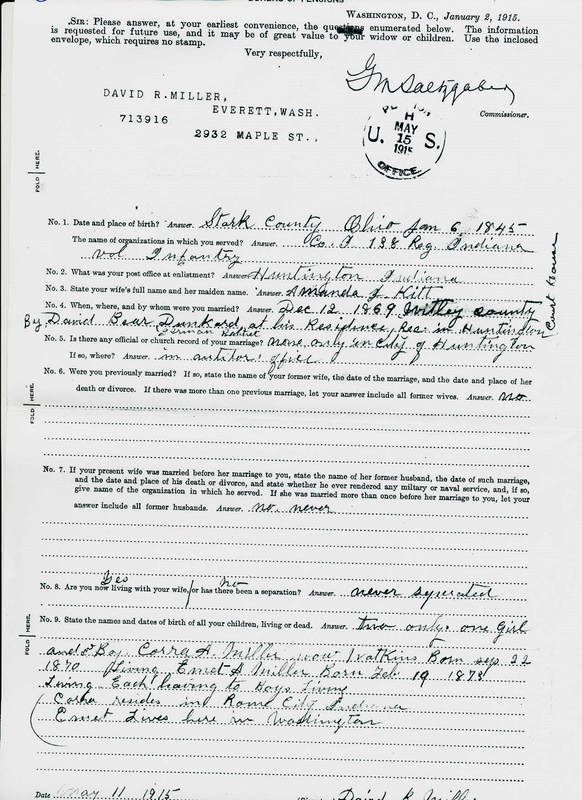 WASHINGTON, D. C., January 2, 1915.
SIR: Please answer, at your earliest convenience, the questions enumerated below. The information
is required for future use, and it may be of great value to your widow or children. Use the inclosed
envelope, which requires no stamp.
Very respectfully,
G M Saltzgaber
Commissioner.
DAVID R. MILLER,
EVERETT, WASH.
713916
2932 MAPLE ST..
MAY
U. 15 S.
1915
OFFICE
FOLD HERE.
No. 1. Date and place of birth? Answer. Stark County Ohio Jan 6, 1845
The name of organizations in which you served? Answer. Co. I 138 Reg. Indiana
Vol Infantry
No. 2. What was your post office at enlistment? Answer Huntington Indiana
No. 3. State your wife's full name and her maiden name. Answer. Amanda J Kitt
No. 4. When, where, and by whom were you married? Answer. Dec 12 1869 Witley County
By David Bear Dunkard at his Residence, Rec. in Huntington
Court House
German
No. 5. Is there any official or church record of your marriage? none only in City of Huntington
If so, where? Answer. in office
No. 6. Were you previously married? If so, state the name of your former wife, the date of the marriage, and the date and place of her
death or divorce. If there was more than one previous marriage, let your answer include all former wives. Answer. No
FOLD HERE.
No. 7. If your present wife was married before her marriage to you, state the name of her former husband, the date of such marriage,
and the date and place of his death or divorce, and state whether he ever rendered any military or naval service, and, if so,
give name of the organization in which he served. If she was married more than once before her marriage to you, let your
answer include all former husbands. Answer. no never
Yes no
No. 8. Are you now living with your wife, or has there been a separation? Answer. never seperated
No. 9. State the names and dates of birth of all your children, living or dead. Answer. two only. one Girl
FOLD HERE.
and Boy Carra A. Miller now Watkins Born sep. 22
1870. Living Emet A Miller Born Feb 19 1873
Living Each having to Boys Living
Carra resides in Rome City Indiana
Emet Lives here in Washington
Date May 11 1915
David R Miller